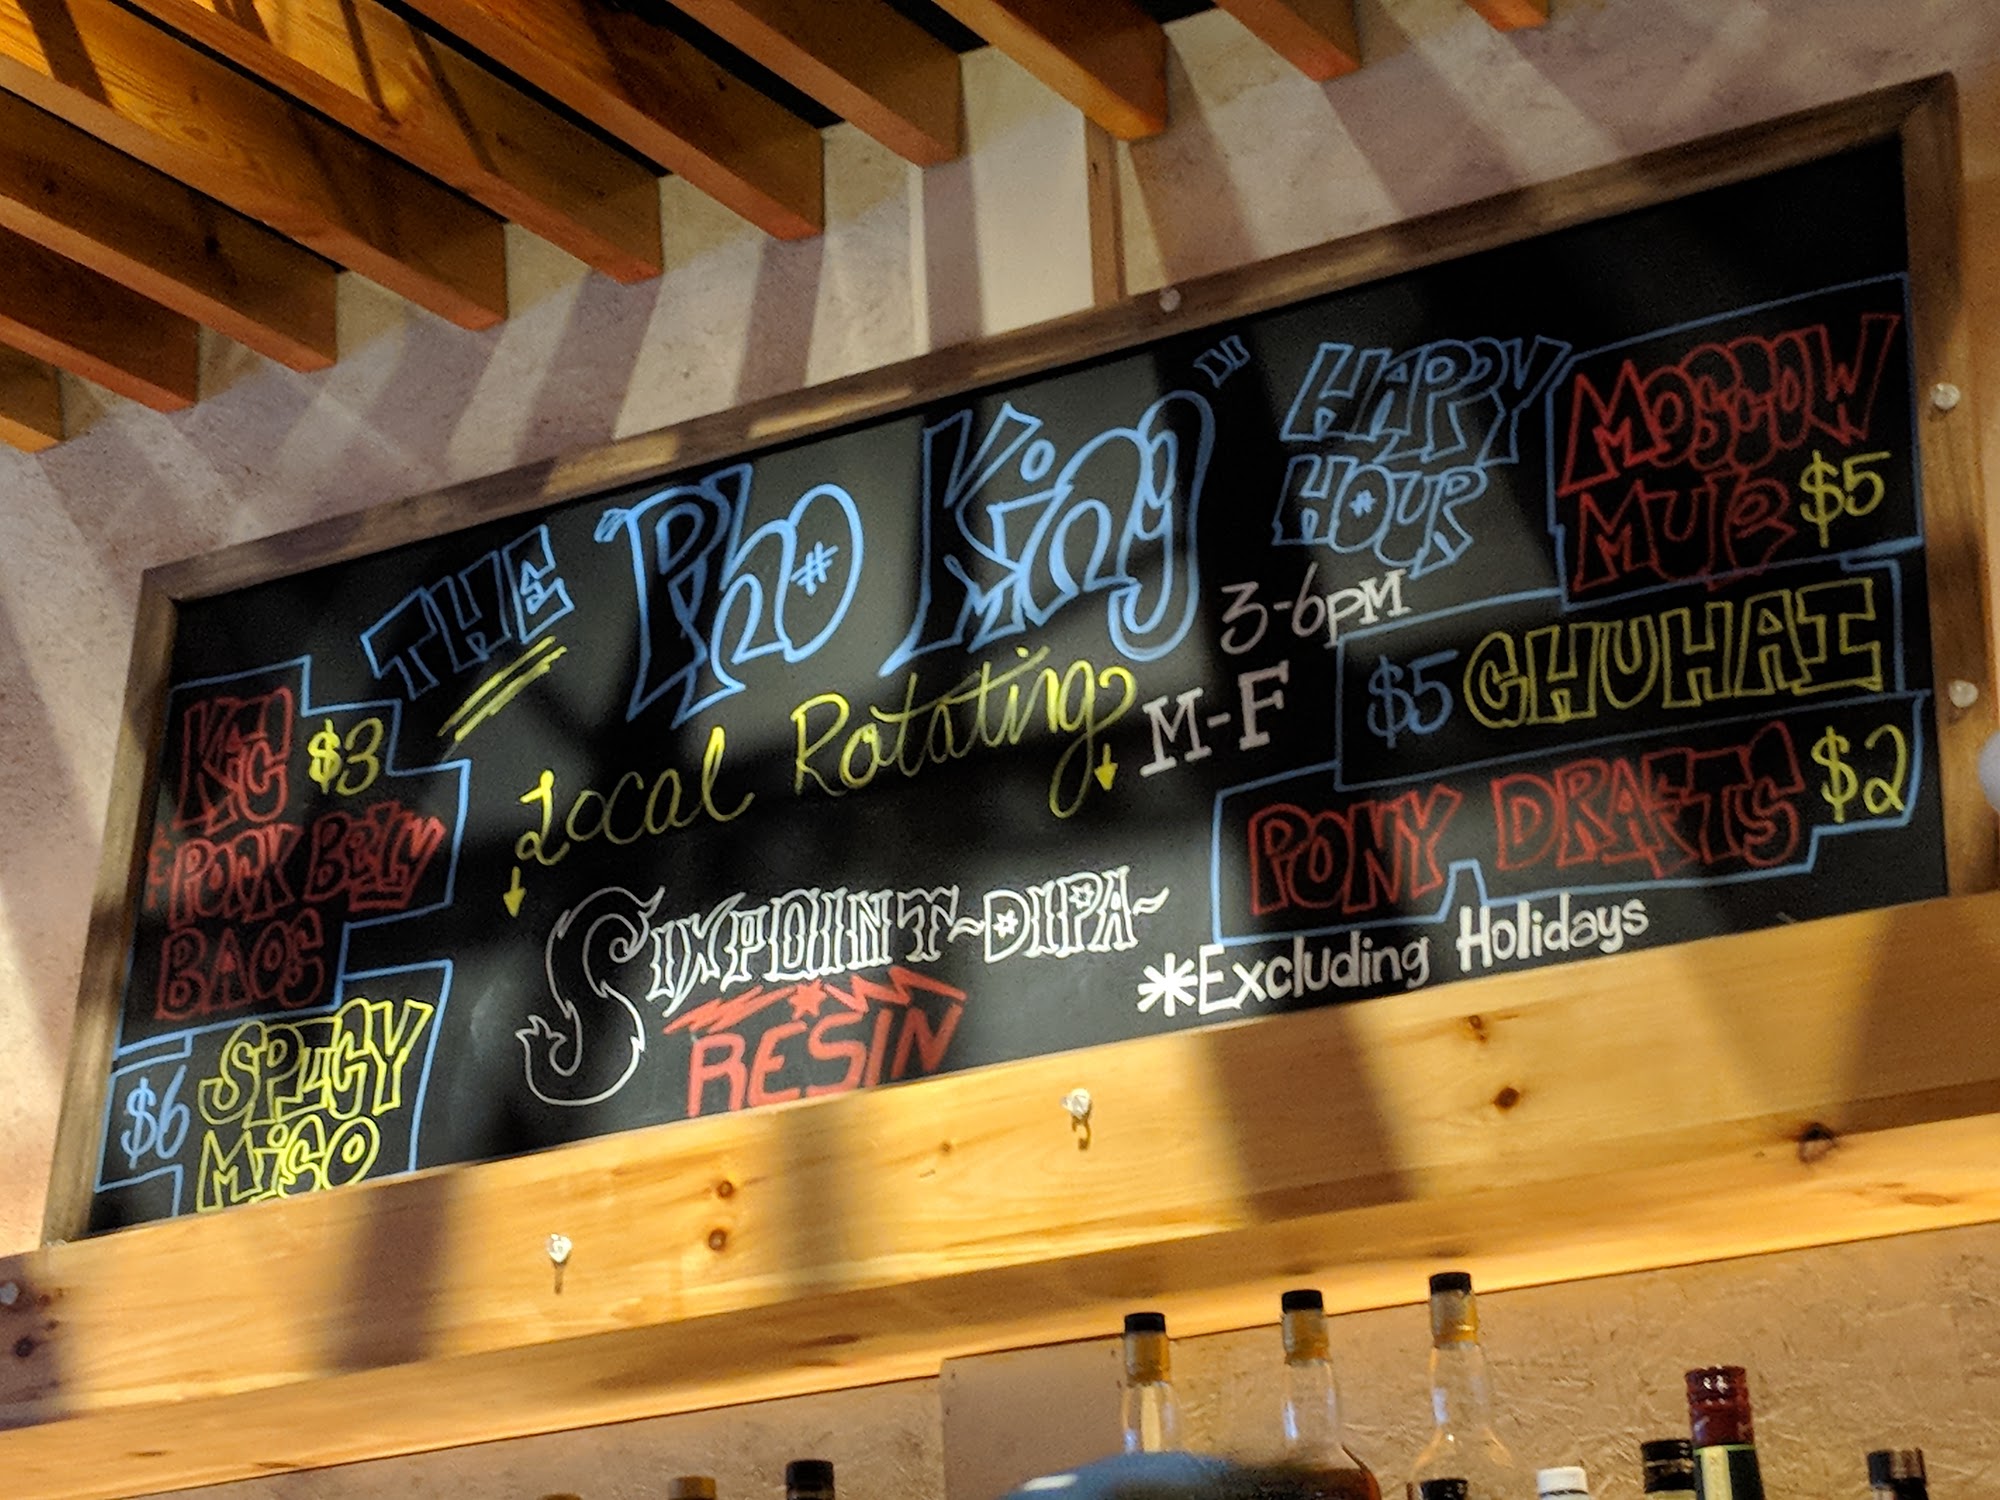 THE "Pho King" HAPPY
HOUR
3-6pM
M-F
Local Rotating
SIXPOINT ~DIPA~
RESIN
KFC $3
PORK BELLY
BAOS
$6 SPICY
MISO
MOSCOW
MULE $5
$5 CHUHAI
PONY DRAFTS $2
*Excluding Holidays